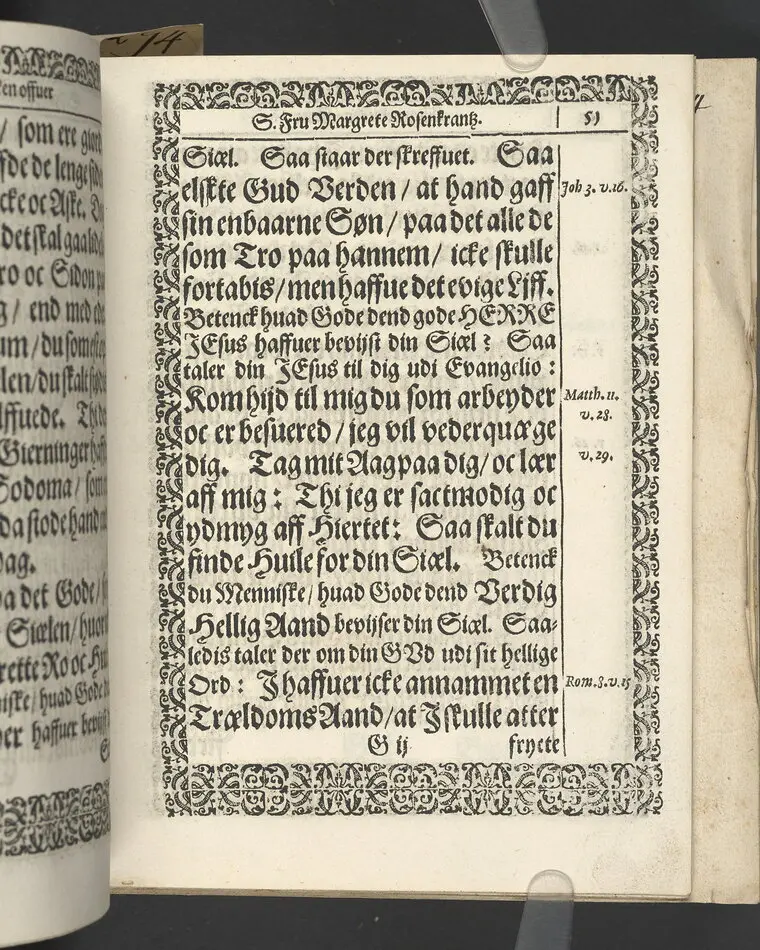 274
en offuer
/ som ere
de lenge
cke oc Aske.
det skal
ro oc Sidon
/ end med
um / du
len/du skalt
ffuede.
Gierninger
Sodoma /
da stode hand
ag.
a det Gode /
Siælen / huor
rette Ro oc
niske / huad Gode
er haffuer
S. Fru Margrete Rosenkrantz. 51
Siæl. Saa staar der skreffuet. Saa
elskte Gud Verden / at hand gaff Joh 3. v. 16.
sin enbaarne Søn / paa det alle de
som Tro paa hannem / icke skulle
fortabis / men haffue det evige Liff.
Betenck huad Gode dend gode HERRE
JEsus haffuer bevijst din Siæl ? Saa
taler din JEsus til dig udi Evangelio :
Kom hijd til mig du som arbeyder Matth. 11.
oc er besuered / jeg vil vederquæge v. 28.
dig. Tag mit Aag paa dig / oc lær v. 29.
aff mig : Thi jeg er sactmodig oc
ydmyg aff Hiertet : Saa skalt du
finde Huile for din Siæl. Betenck
du Menniske / huad Gode dend Verdig
Hellig Aand bevijser din Siæl. Saa-
ledis taler der om din GVd udi sit hellige
Ord : J haffuer icke annammet en Rom. 8. v. 15
Trældoms Aand / at J skulle atter
G ij frycte